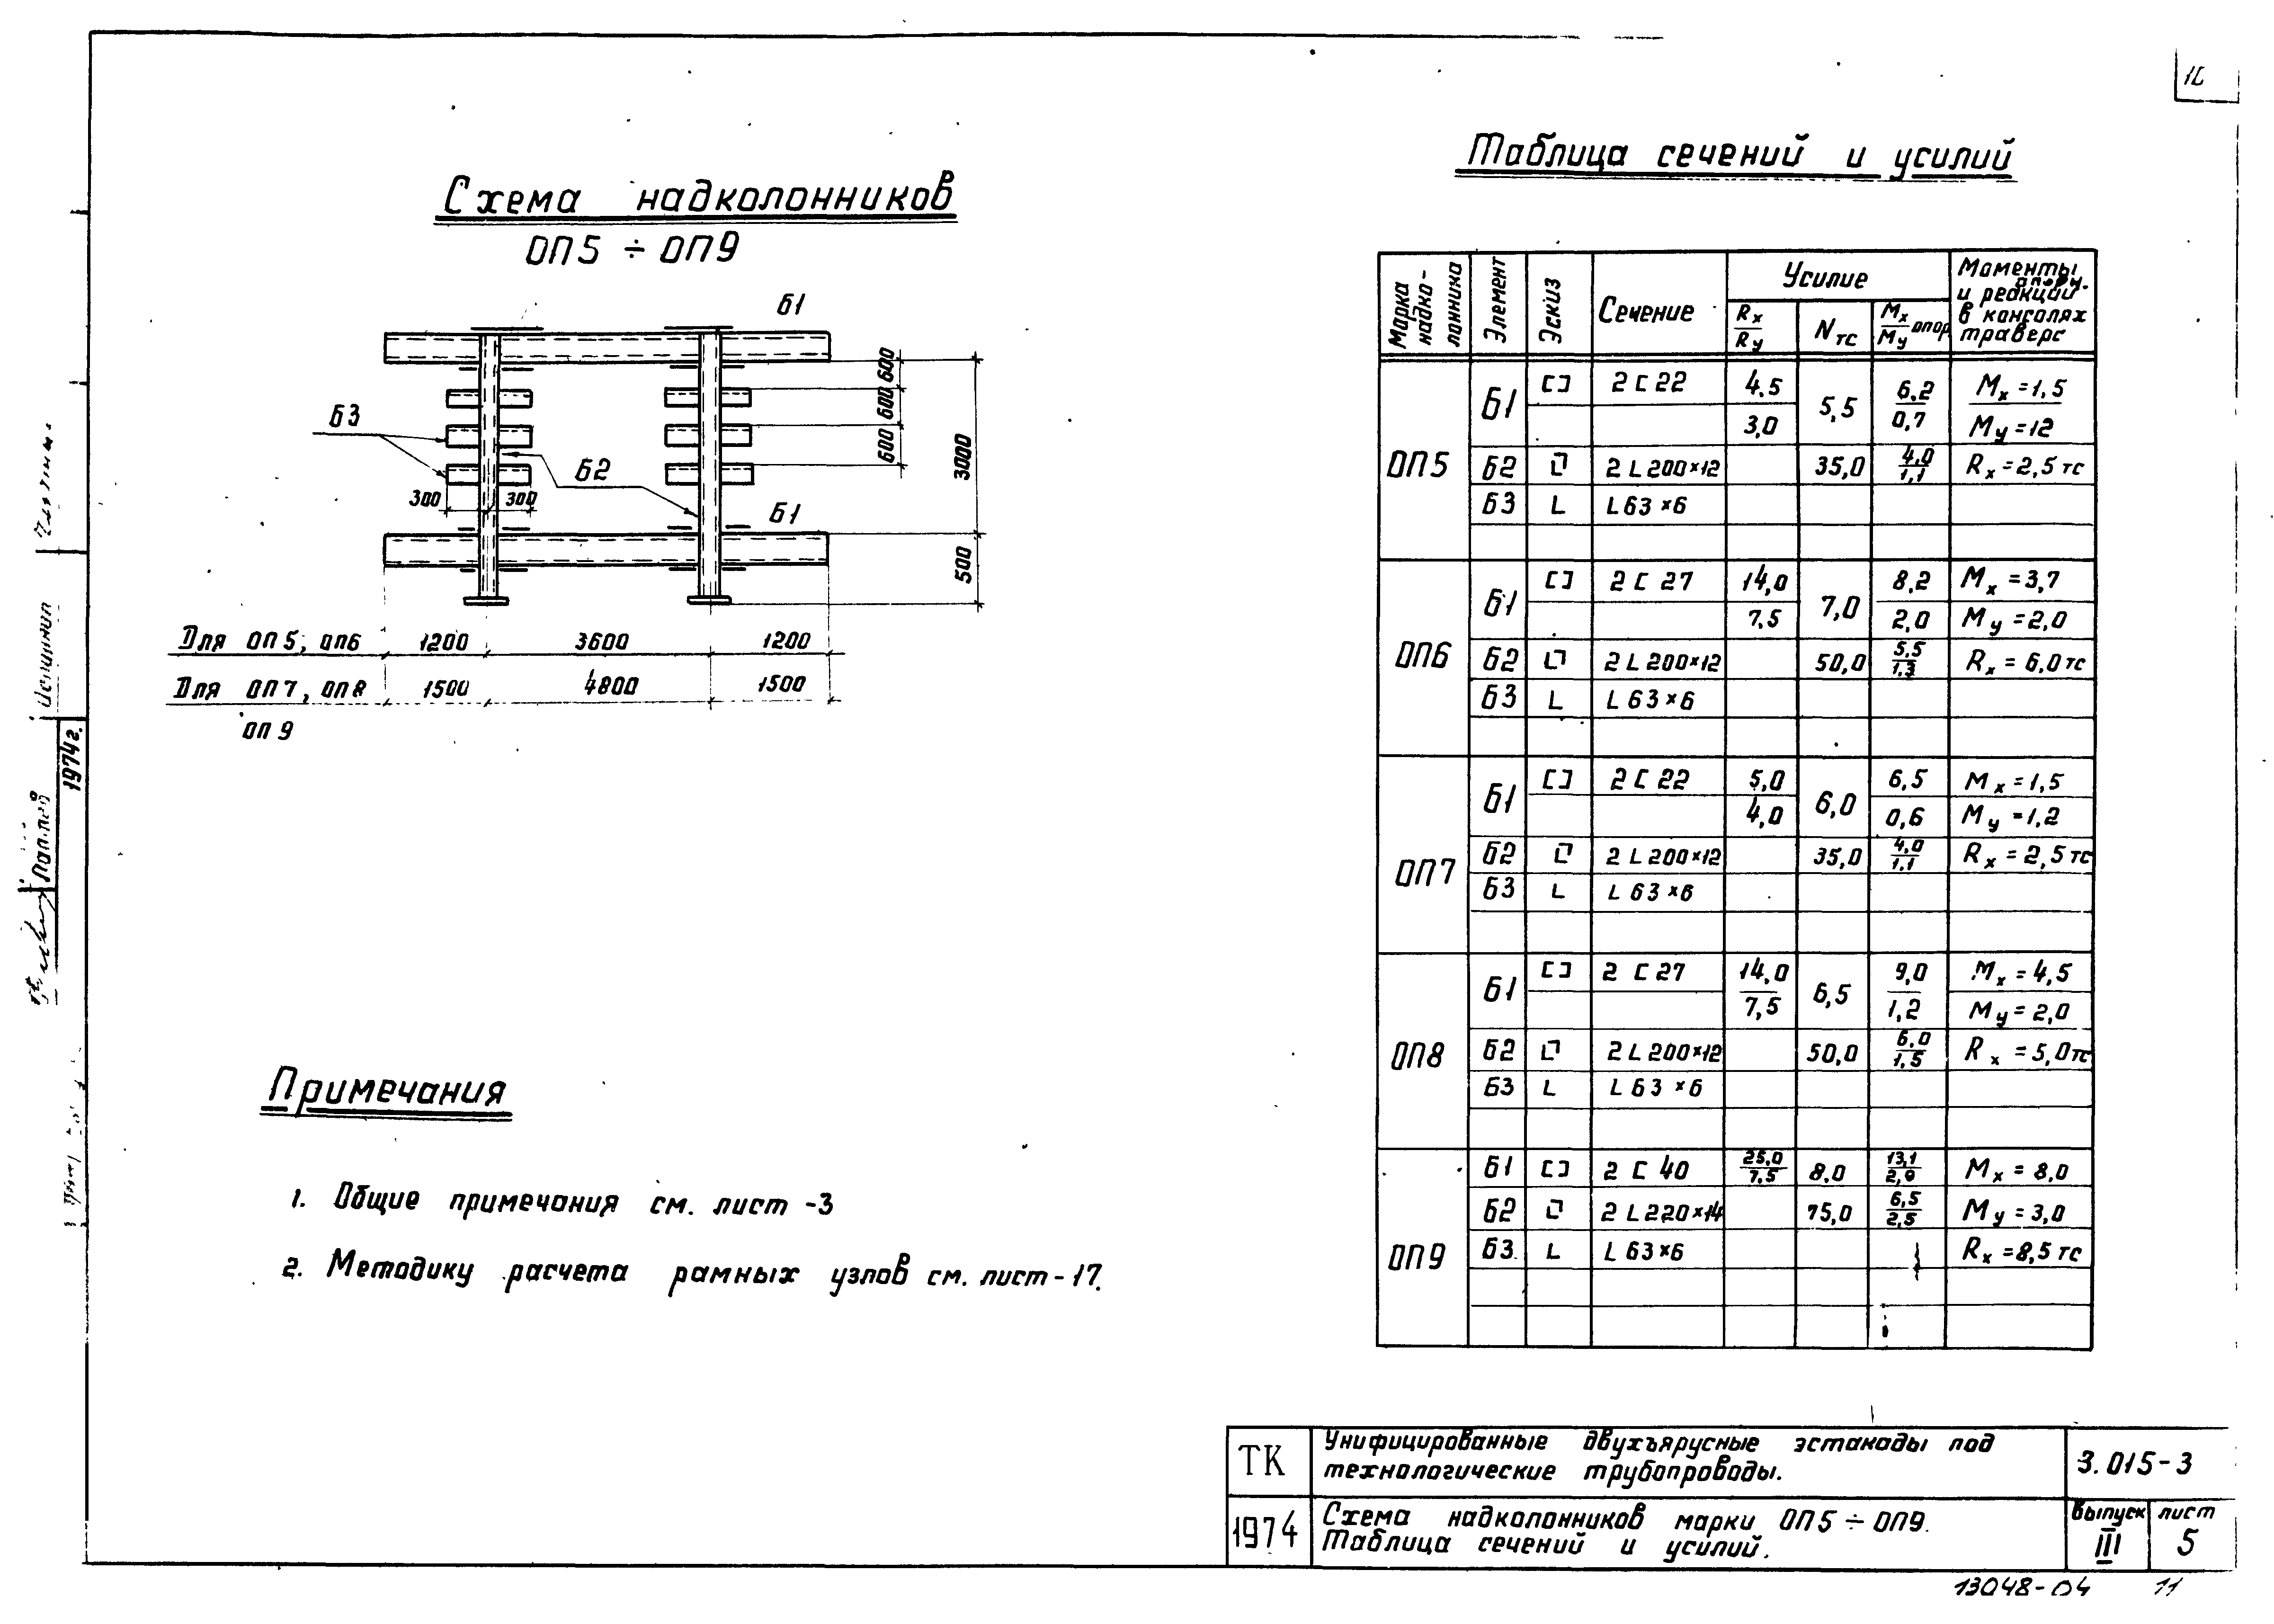 Схема надколонников
ОП5 ÷ ОП9
Б1
Б3
Б2
Б1
300 300
600 600 600
3000
500
Для ОП5, ОП6 1200 3600 1200
Для ОП7, ОП8 1500 4800 1500
ОП9
Примечания
1. Общие примечания см. лист -3
2. Методику расчета рамных узлов см. лист -17.
Таблица сечений и усилий
Марка надко-лонника Элемент Эскиз Сечение Усилие Моменты и реакции опорн. в консолях траверс
Rx/Ry Nтс Mx/My опор
ОП5
Б1 [] 2 [ 22 4.5/3,0 5,5 6.2/0,7 Mx = 1,5
My = 12
Б2 2 L 200×12 35,0 4,0/1,1 Rx = 2,5 тс
Б3 L L 63×6
ОП6
Б1 [] 2 [ 27 14,0/7,5 7,0 8,2/2,0 Mx = 3,7
My = 2,0
Б2 2 L 200×12 50,0 5,5/1,3 Rx = 6,0 тс
Б3 L L 63×6
ОП7
Б1 [] 2 [ 22 5,0/4,0 6,0 6,5/0,6 Mx = 1,5
My = 1,2
Б2 2 L 200×12 35,0 4,0/1,1 Rx = 2,5 тс
Б3 L L 63×6
ОП8
Б1 [] 2 [ 27 14,0/7,5 6,5 9,0/1,2 Mx = 4,5
My = 2,0
Б2 2 L 200×12 50,0 6,0/1,5 Rx = 5,0 тс
Б3 L L 63×6
ОП9
Б1 [] 2 [ 40 25,0/7,5 8,0 13,1/2,0 Mx = 8,0
Б2 2 L 220×14 75,0 6,5/2,5 My = 3,0
Б3 L L 63×6 Rx = 8,5 тс
ТК
1974
Унифицированные двухъярусные эстакады под
технологические трубопроводы.
3.015-3
Схема надколонников марки ОП5 ÷ ОП9.
Таблица сечений и усилий.
выпуск III
лист 5
13048-04 11
1974г.